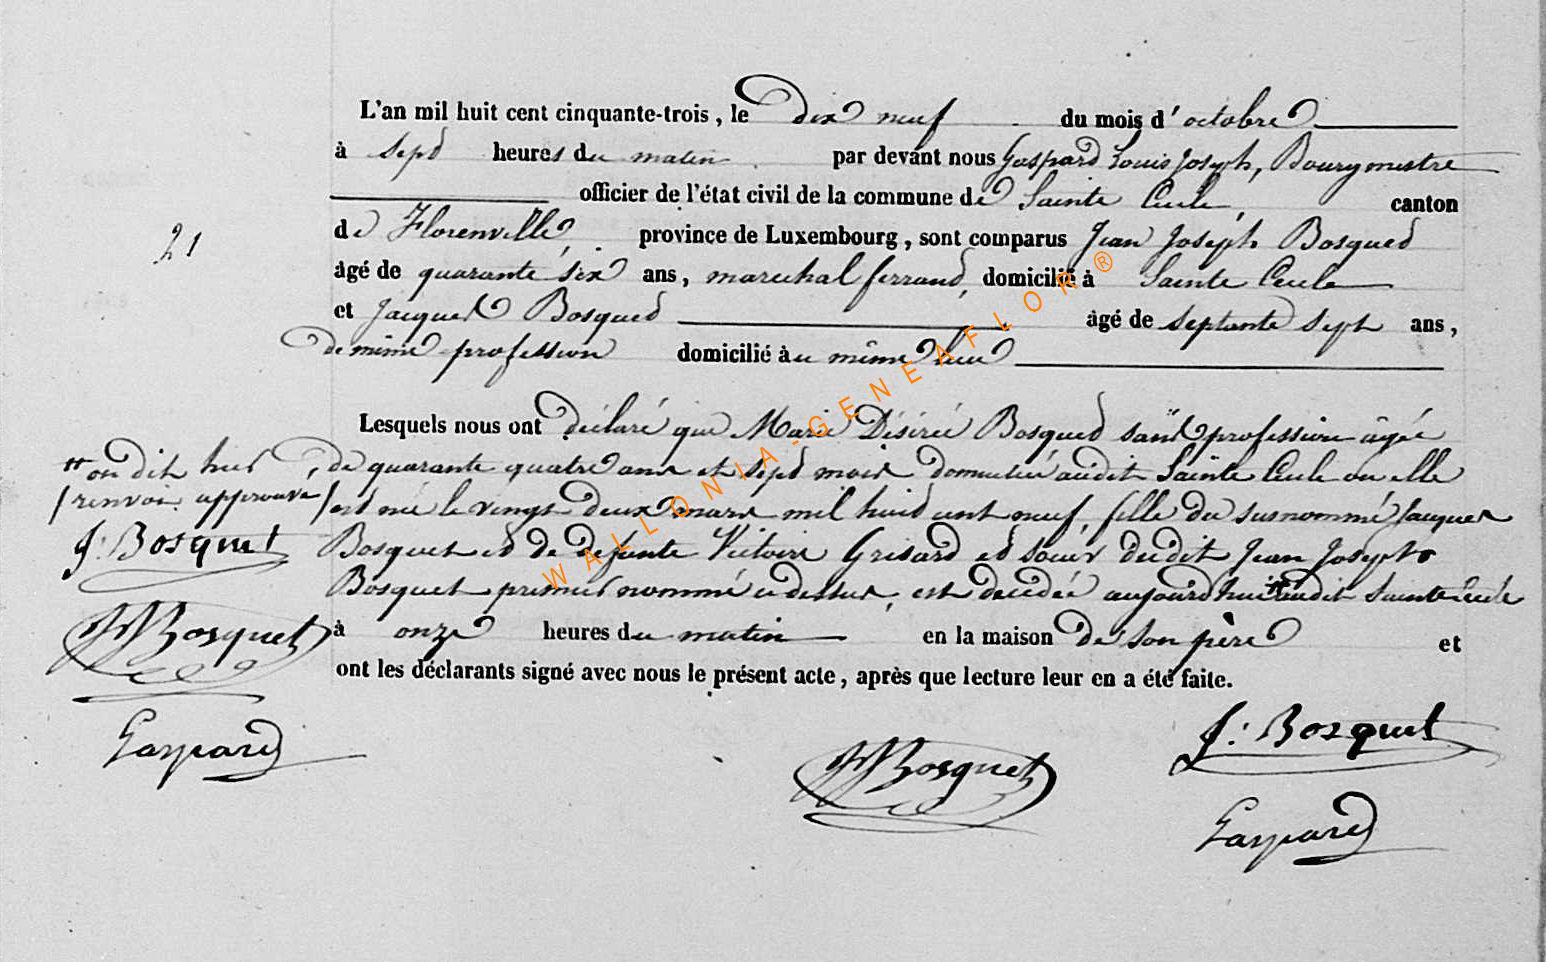 L'an mil huit cent cinquante-trois, le dix neuf du mois d'octobre
à sept heures du matin par devant nous Gaspard Louis Joseph, Bourgmestre
officier de l'état civil de la commune de Sainte Cecile, canton
21
de Florenville, province de Luxembourg, sont comparus Jean Joseph Bosquet
âgé de quarante six ans, marechal ferrand, domicilié à Sainte Cecile
et Jacques Bosquet âgé de septante sept ans,
de même profession domicilié au même lieu
Lesquels nous ont déclaré que Marie Désirée Bosquet sans profession âgée
de quarante quatre ans et sept mois domiciliée audit Sainte Cecile ou elle
est née le vingt deux mars mil huit cent neuf, fille du susnommé Jacques
Bosquet et de defunte Victoire Grisard et soeur dudit Jean Joseph
Bosquet premier nommé ci dessus, est decédée aujourd'hui audit Sainte Cecile
à onze heures du matin en la maison de son père et
ont les déclarants signé avec nous le présent acte, après que lecture leur en a été faite.
on dit hier
renvoi approuvé
J: Bosquet
JJBosquet
Gaspard
J: Bosquet
JJBosquet
Gaspard
WALLONIA-GENEAFLOR®